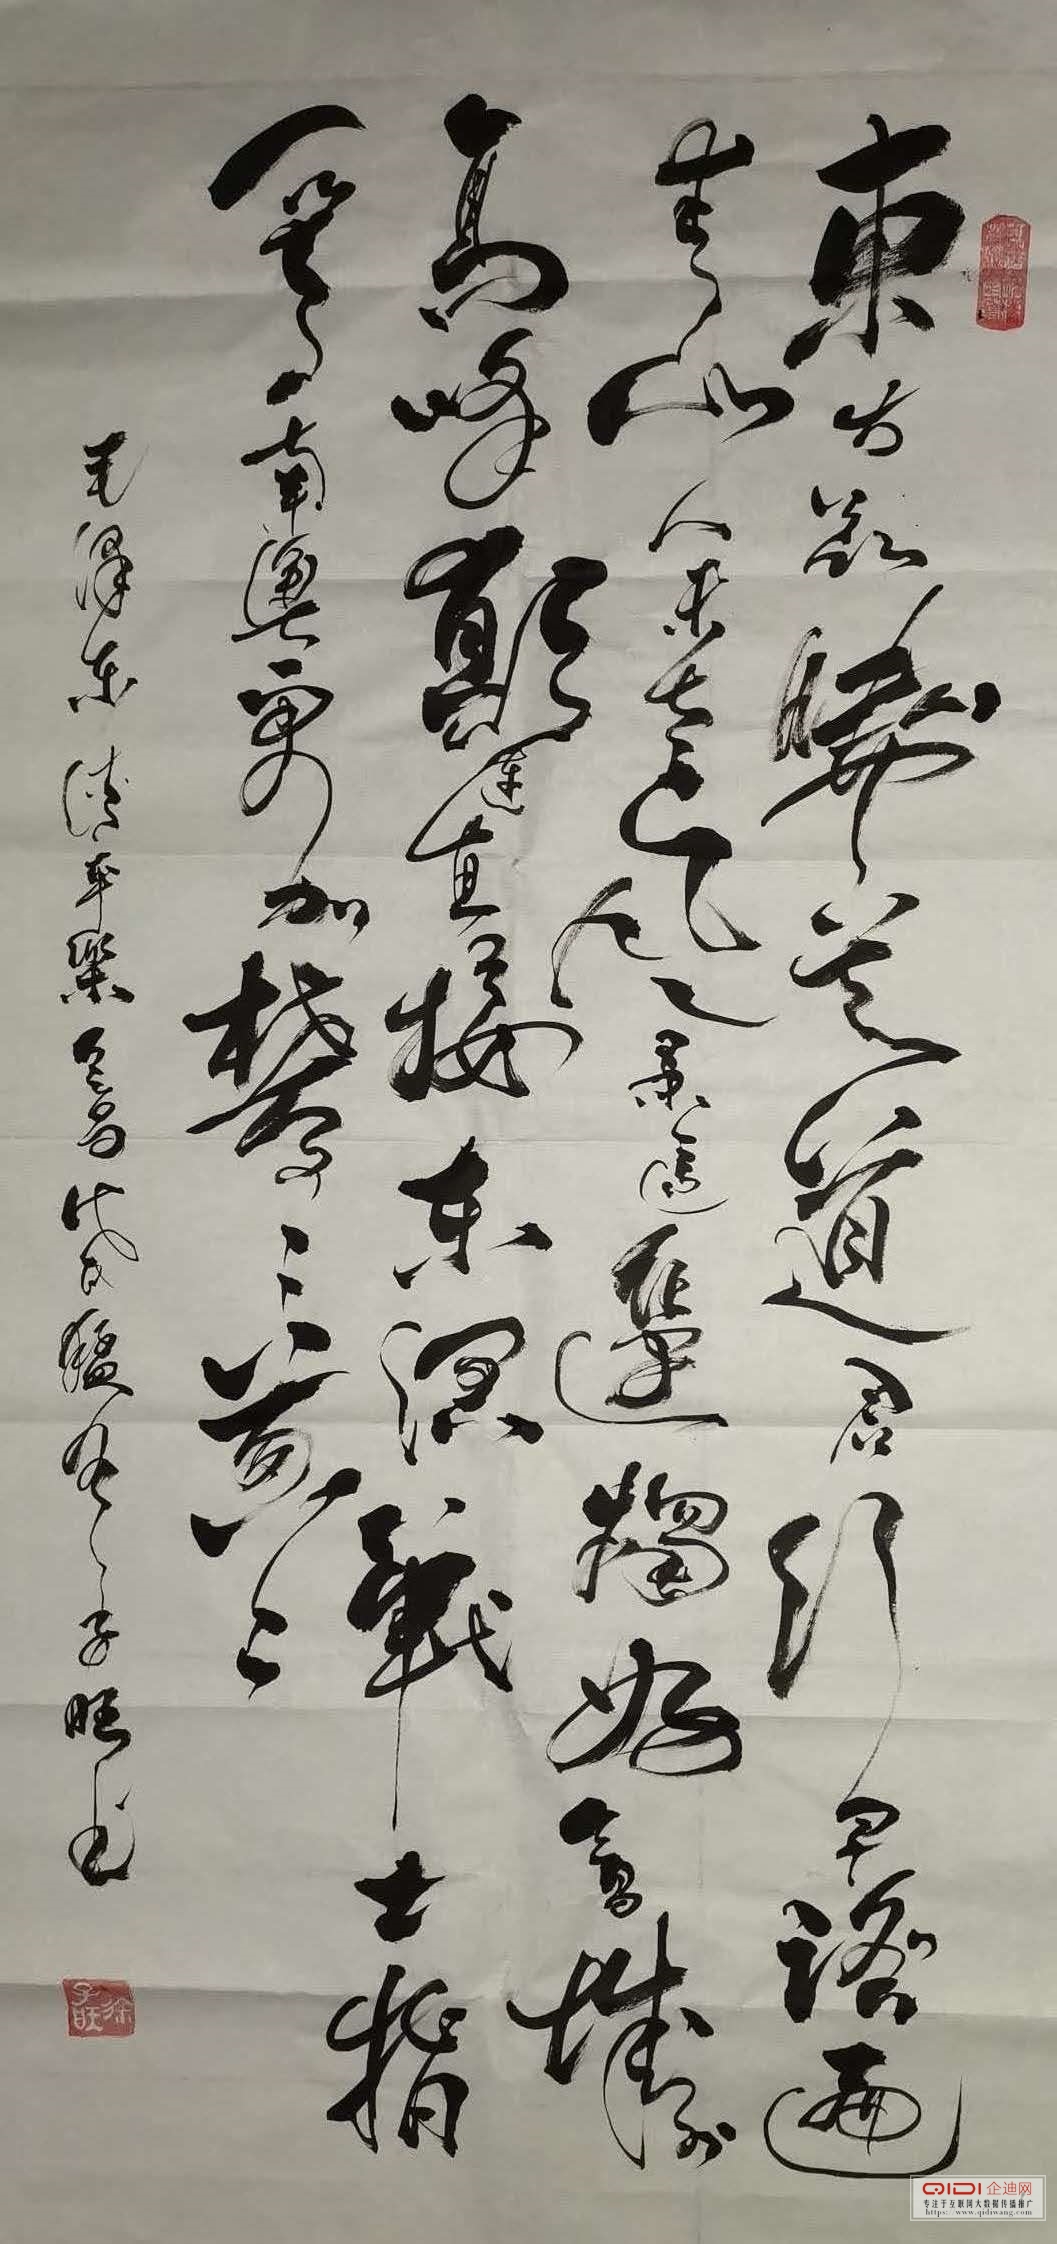 東方欲曉莫道君行早踏遍
青山人未老風景這邊獨好會昌城外
高峰顛連直接东溟戰士指
看南粵更加鬱々葱々
毛澤东清平樂會昌戊戌猛冬子旺书
徐子旺
QIDI 企迪网
专注于互联网大数据传播推广
https://www.qidiwang.com